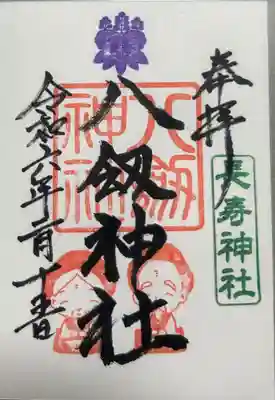 奉拝
長寿神社
八剱神社
八剱神社
令和六年二月十一日